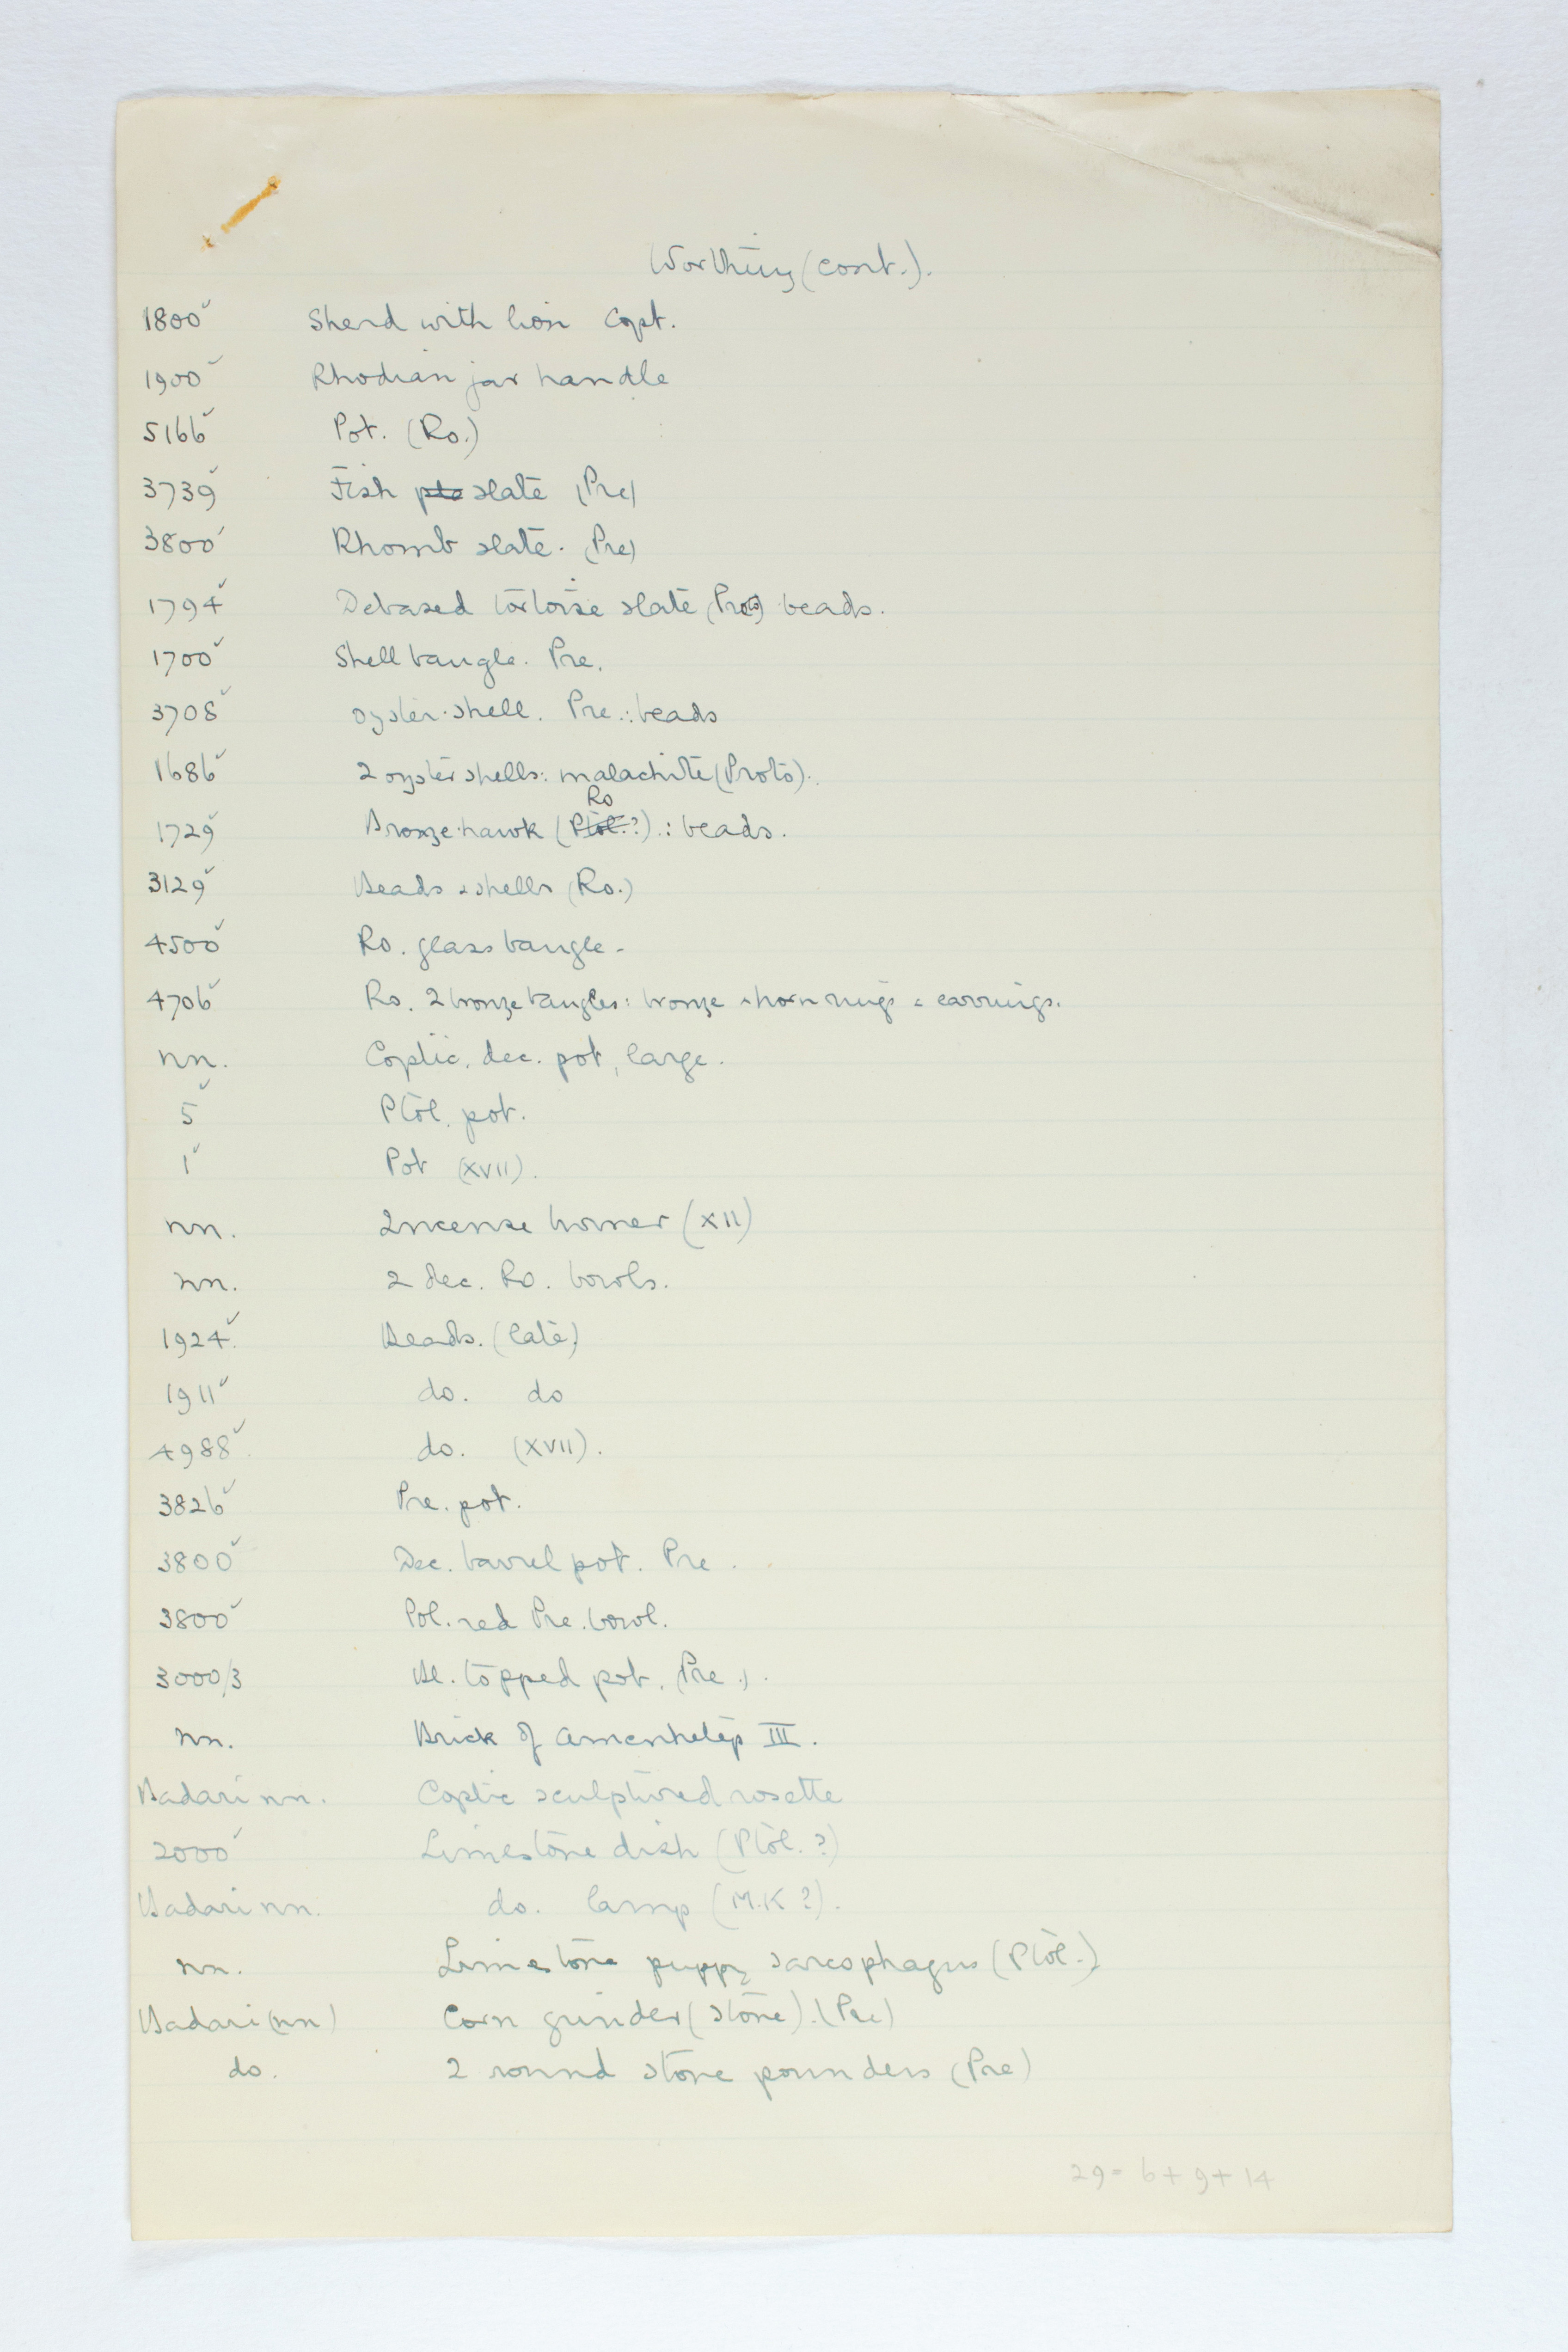 Worthing (cont.).
1800✓ Sherd with lion Copt.
1900✓ Rhodian jar handle
5166✓ Pot. (Ro.)
3739✓ Fish pla slate (Pre)
3800✓ Rhomb slate. (Pre)
1794✓ Debased tortoise slate (Proto) beads.
1700✓ Shell bangle. Pre.
3708✓ oyster-shell. Pre.: beads
1686✓ 2 oyster shells: malachite (Proto).
Ro
1729✓ Bronze hawk (Ptol.?).: beads.
3129✓ Beads & shells (Ro.)
4500✓ Ro. glass bangle.
4706✓ Ro. 2 bronze bangles: bronze & horn rings & earrings.
nn. Coptic. dec. pot, large.
5✓ Ptol. pot.
1✓ Pot (XVII).
nn. Incense burner (XII)
nn. 2 dec. Ro. bowls.
1924✓ Beads. (late)
1911✓ do. do
4988✓ do. (XVII).
3826✓ Pre. pot.
3800✓ Dec. barrel pot. Pre.
3800✓ Pol. red Pre. bowl.
3000/3 Bl. topped pot. (Pre.).
nn. Brick of Amenhetep III.
Badari nn. Coptic sculptured rosette
2000✓ Limestone dish (Ptol.?)
Badari nn. do. lamp (M.K?).
nn. Limestone puppy sarcophagus (Ptol.)
Badari (nn) Corn grinder (stone). (Pre)
do. 2 round stone pounders (Pre)
29 = 6 + 9 + 14